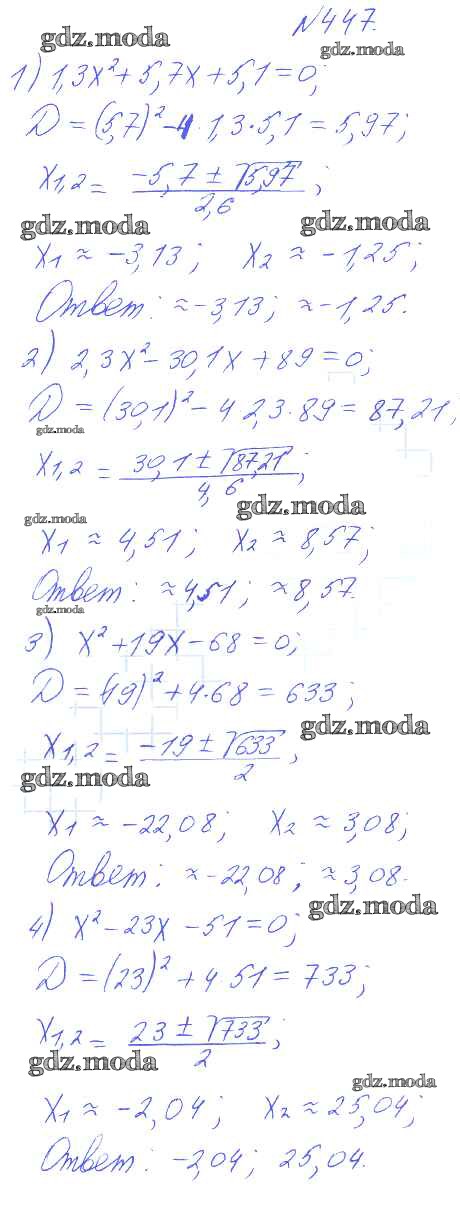 №447.
gdz.moda
gdz.moda
1) 1,3x² + 5,7x + 5,1 = 0;
D = (5,7)² - 4·1,3·5,1 = 5,97;
x₁,₂ = (-5,7 ± √5,97)/2,6;
gdz.moda
gdz.moda
x₁ ≈ -3,13; x₂ ≈ -1,25;
Ответ: ≈ -3,13; ≈ -1,25.
2) 2,3x² - 30,1x + 89 = 0;
D = (30,1)² - 4 2,3·89 = 87,21;
gdz.moda
x₁,₂ = (30,1 ± √87,21)/4,6;
gdz.moda
gdz.moda
x₁ ≈ 4,51; x₂ ≈ 8,57;
Ответ: ≈ 4,51; ≈ 8,57.
gdz.moda
3) x² + 19x - 68 = 0;
D = (19)² + 4·68 = 633;
gdz.moda
x₁,₂ = (-19 ± √633)/2,
gdz.moda
x₁ ≈ -22,08; x₂ ≈ 3,08;
Ответ: ≈ -22,08; ≈ 3,08.
gdz.moda
4) x² - 23x - 51 = 0;
D = (23)² + 4 51 = 733;
x₁,₂ = (23 ± √733)/2;
gdz.moda
gdz.moda
x₁ ≈ -2,04; x₂ ≈ 25,04;
Ответ: -2,04; 25,04.